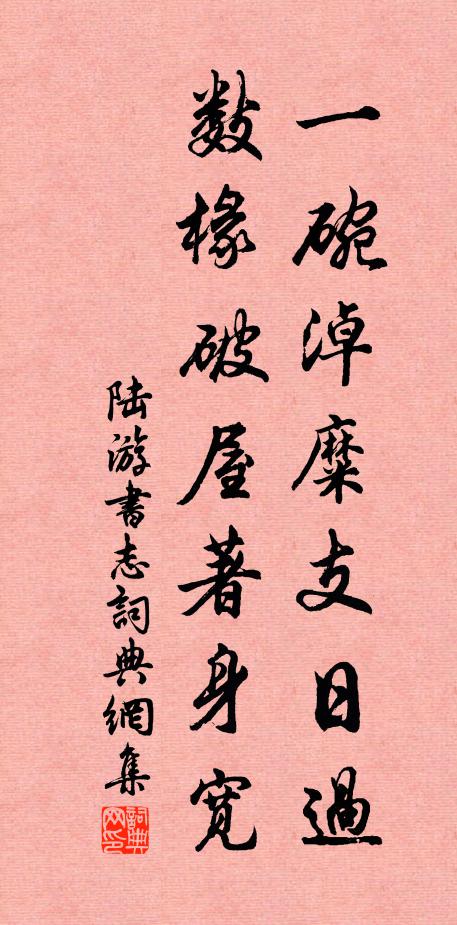 一碗淖糜支日過
數椽破屋著身寬
陸游書志詞典網集
詞典网印